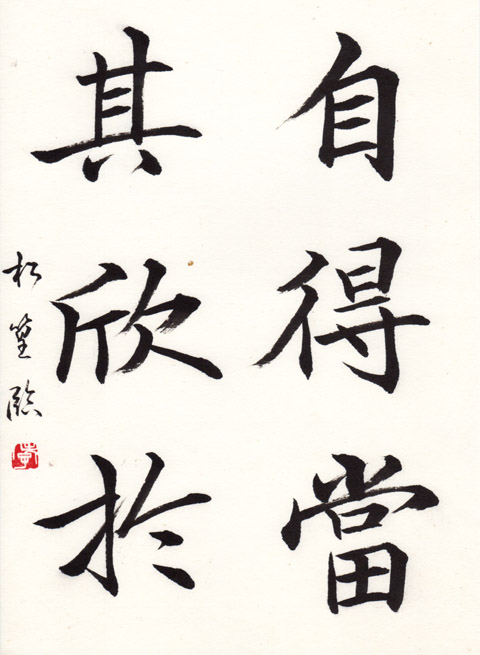 自得當
其欣於
松篁臨